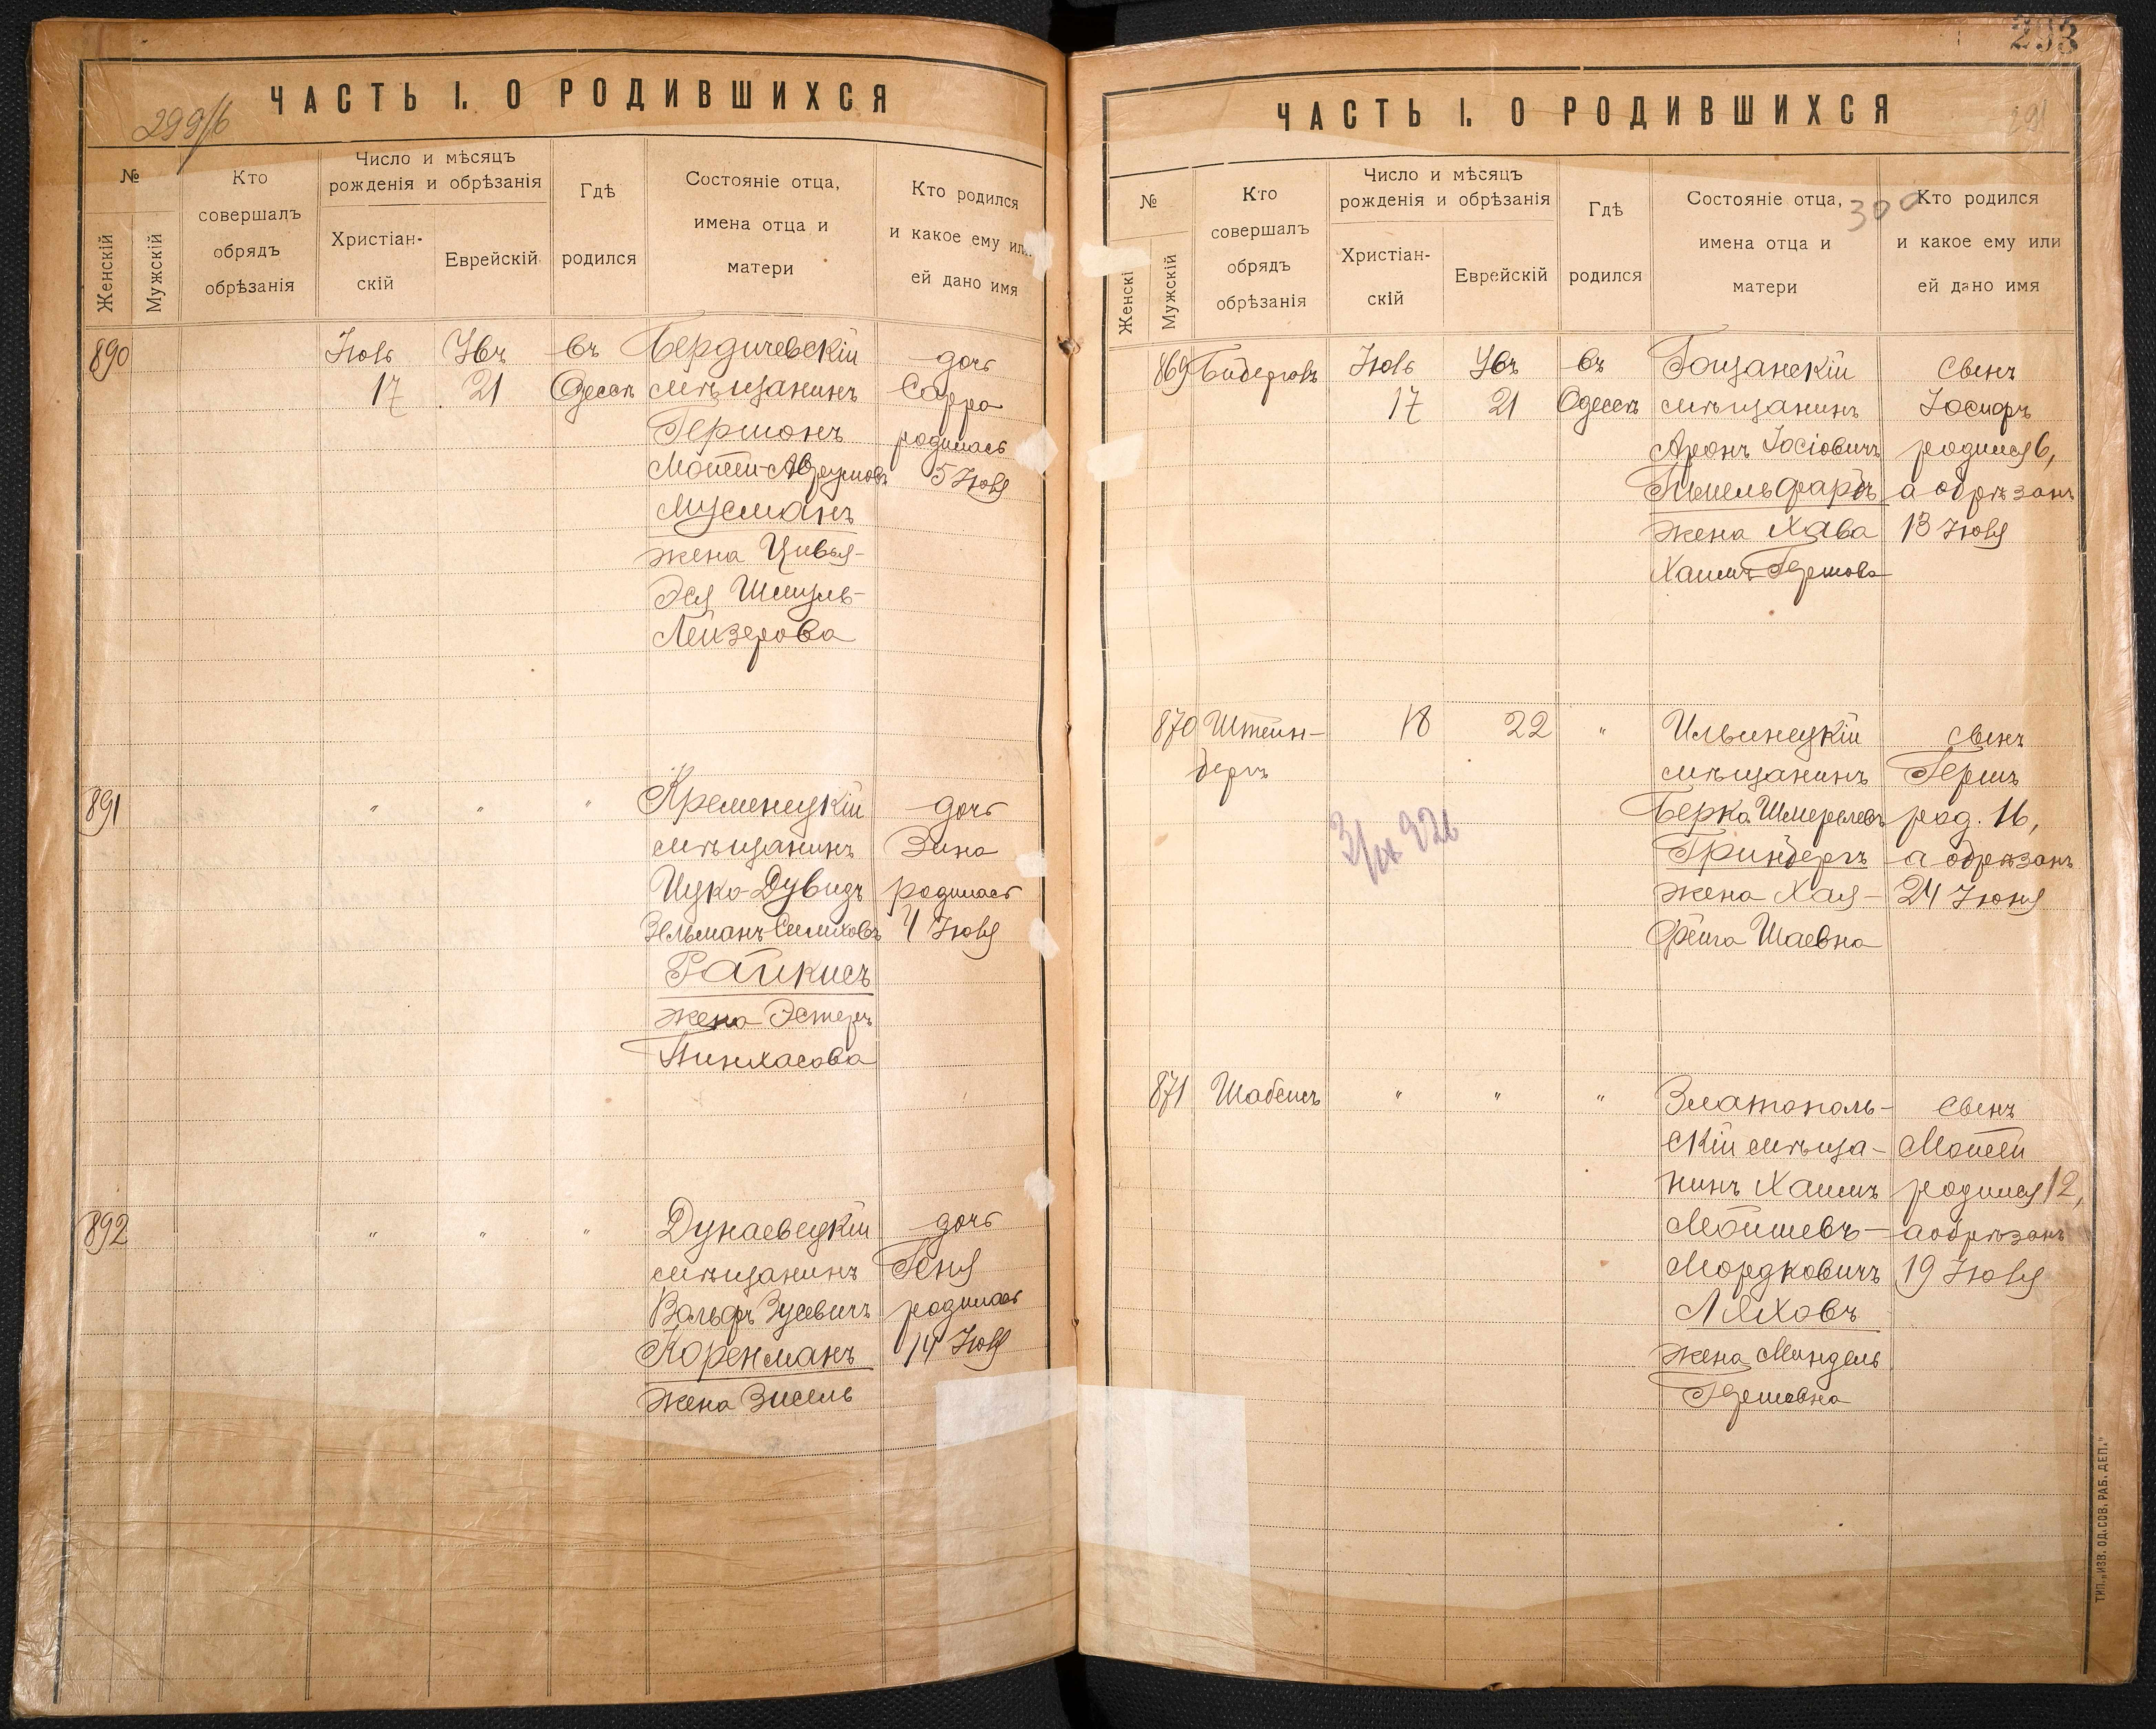 ЧАСТЬ I. О РОДИВШИХСЯ
299/б
№
Женскій
Мужскій
Кто
совершалъ
обрядъ
обрѣзанія
Число и мѣсяцъ
рожденія и обрѣзанія
Христіан-
скій
Еврейскій
Гдѣ
родился
Состояніе отца,
имена отца и
матери
Кто родился
и какое ему или
ей дано имя
890
Іюль
17
21
въ
Одессѣ
Бердичевскій
мѣщанинъ
Гершонъ
Мойсей-Аврумовъ
Мусманъ
жена Цивья-
Эся Шмуль-
Лейзерова
дочь
Сарра
родилась
5 Іюля
891
" " "
Кременецкій
мѣщанинъ
Ицко-Дувидъ
Зельманъ
Райкисъ
жена Эстеръ
Пинхасова
дочь
Зина
родилась
4 Іюля
892
" " "
Дунаевецкій
мѣщанинъ
Вольфъ Зусевичъ
Коренманъ
жена Зисель
дочь
Геня
родилась
14 Іюля
293
ЧАСТЬ I. О РОДИВШИХСЯ
291
300
№
Женскі
Мужскій
Кто
совершалъ
обрядъ
обрѣзанія
Число и мѣсяцъ
рожденія и обрѣзанія
Христіан-
скій
Еврейскій
Гдѣ
родился
Состояніе отца,
имена отца и
матери
Кто родился
и какое ему или
ей дано имя
869
Іюль
17
21
въ
Одессѣ
Гощанскій
мѣщанинъ
Аронъ Іосіовичъ
жена Хава
Хаимъ-Гершова
сынъ
Іосифъ
родился 6,
а обрѣзанъ
13 Іюля
870
Штейн-
бергъ
18
22
"
Ильинецкій
мѣщанинъ
Берка Шмерелевъ
Гринбергъ
жена Хая-
Фейга Шаевна
сынъ
Гершъ
род. 16,
а обрѣзанъ
24 Іюня
871
Шабсисъ
" " "
Златополь-
скій мѣща-
нинъ Хаимъ
Мойшевъ-
Мордковичъ
Ляховъ
жена Миндель
Гершовна
сынъ
Мойсей
родился 12,
а обрѣзанъ
19 Іюля
ТИП. „ИЗВ. ОД. СОВ. РАБ. ДЕП.“